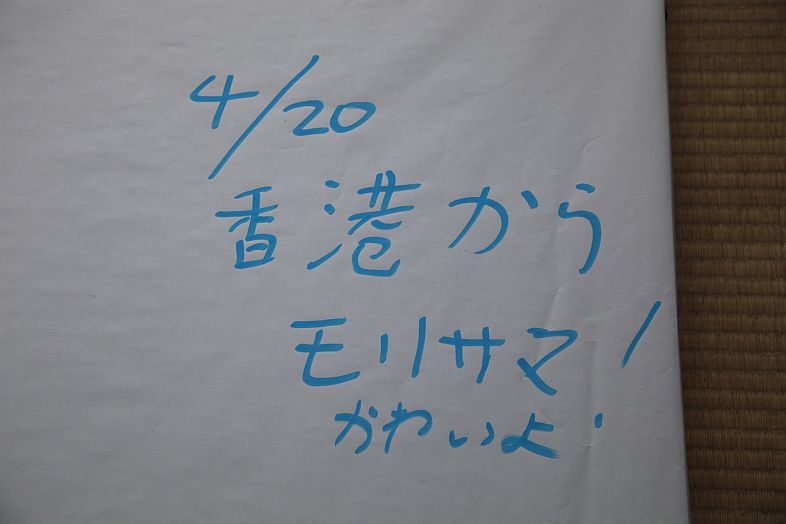 4/20
香港から
モリサマ!
かわいよ